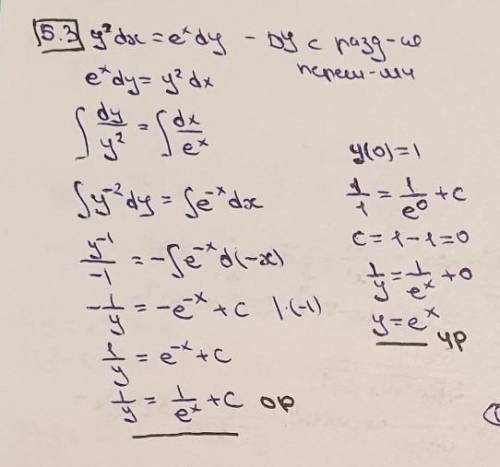 5.3 y²dx = eˣdy - ДУ с разд-ю
перем-ми
eˣdy = y²dx
∫ dy/y² = ∫ dx/eˣ
∫y⁻²dy = ∫e⁻ˣdx
y⁻¹/-1 = -∫e⁻ˣd(-x)
-1/y = -e⁻ˣ + C |·(-1)
1/y = e⁻ˣ + C
1/y = 1/eˣ + C ОР
y(0) = 1
1/1 = 1/e⁰ + C
C = 1 - 1 = 0
1/y = 1/eˣ + 0
y = eˣ
ЧР